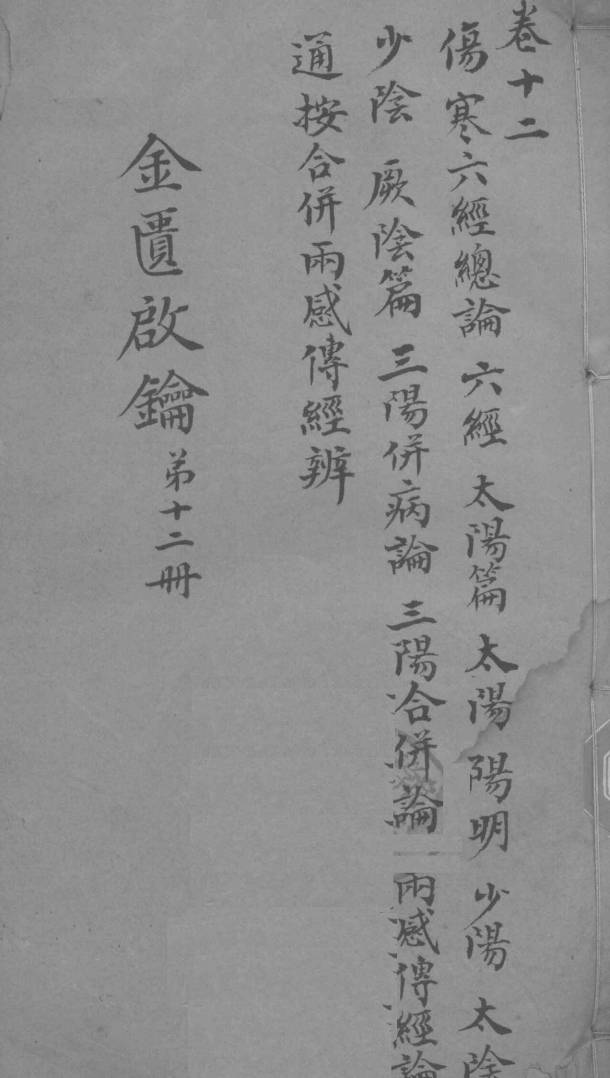 卷十二
傷寒六經總論 六經 太陽篇 太陽 陽明 少陽 太陰
少陰 厥陰篇 三陽併病論 三陽合併論 兩感傳經論
通按合併兩感傳經辨
金匱啟鑰 弟十二冊